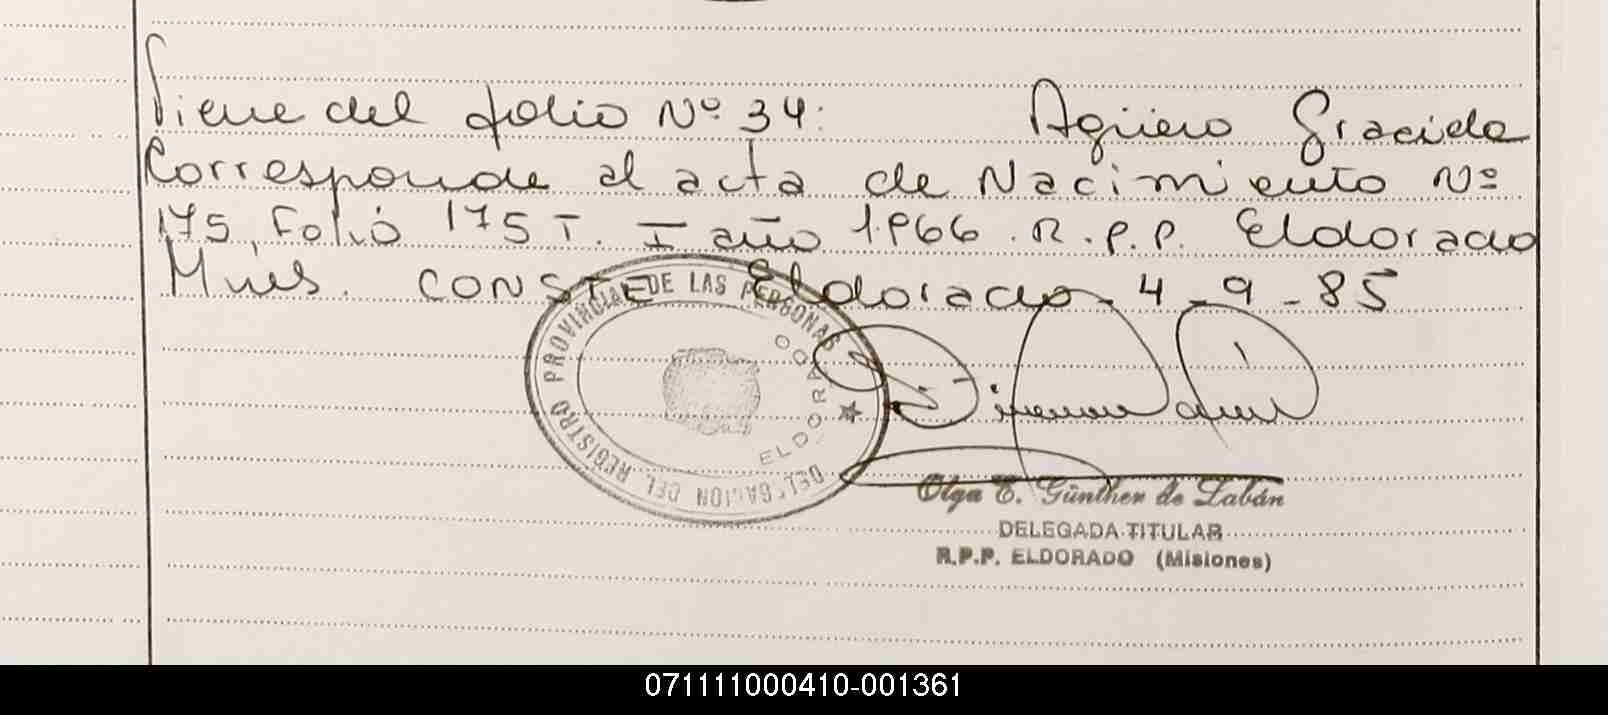 Viene del folio Nº 34: Agüero Graciela
Corresponde al acta de Nacimiento Nº
175, Folio 175 T. I año 1966. R.P.P. Eldorado
Mnes. CONSTE Eldorado - 4 - 9 - 85
DELEGACION DEL REGISTRO PROVINCIAL DE LAS PERSONAS
ELDORADO
Olga E. Günther de Labán
DELEGADA TITULAR
R.P.P. ELDORADO (Misiones)
071111000410-001361